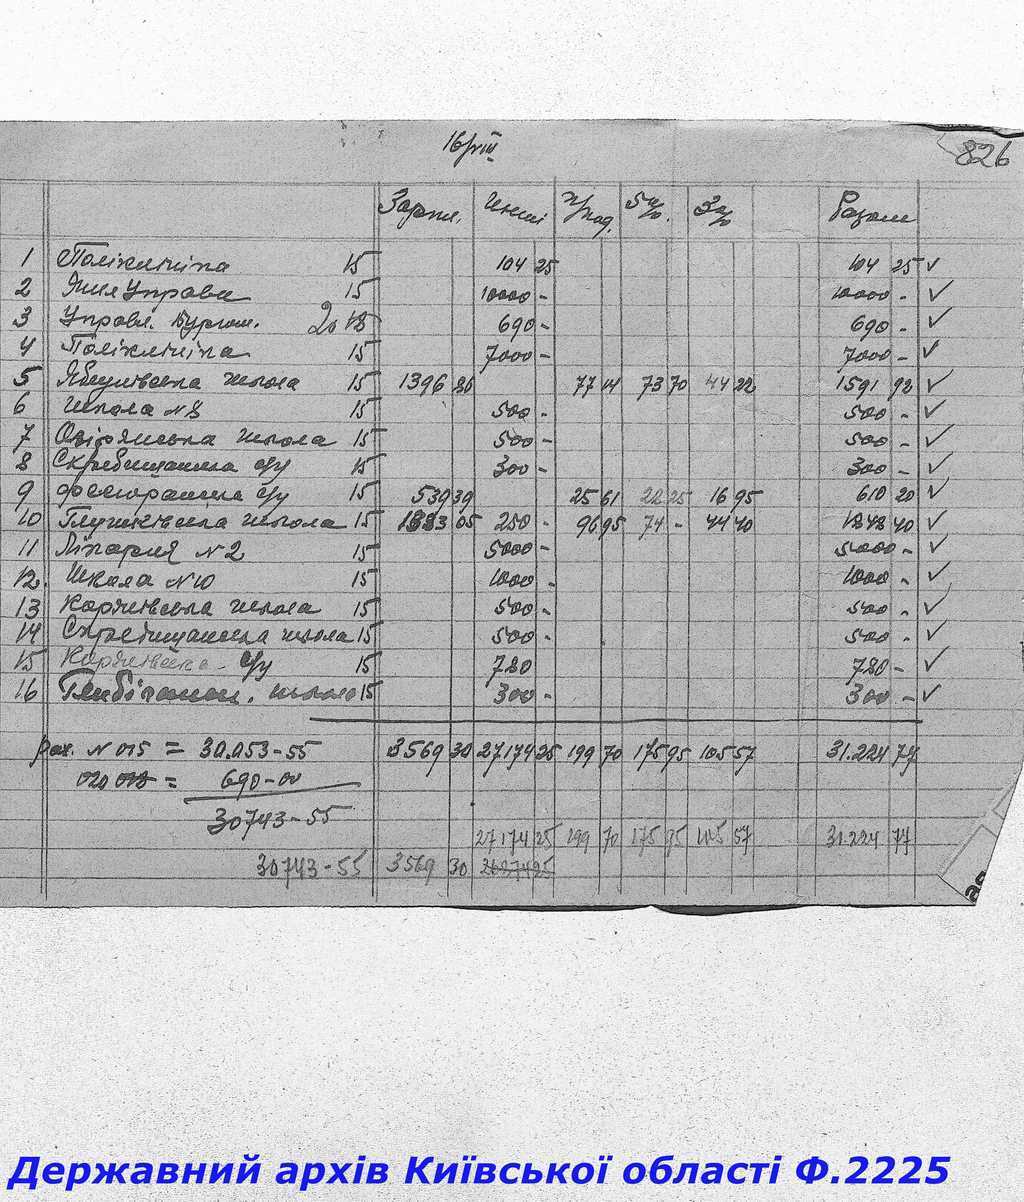 16/VIII
826
Зарпл. Инші п/под. 5% 3% Разом
1 Поліклініка 15 104 25 104 25 ✓
2 Управа 15 10000 - 10000 - ✓
3 Управл. Бургом. 20 690 - 690 - ✓
4 Поліклініка 15 7000 - 7000 - ✓
5 школа 15 1396 86 77 14 73 70 44 22 1591 92 ✓
6 Школа №8 15 500 - 500 - ✓
7 Озірянська школа 15 500 - 500 - ✓
8 Скребишанська с/у 15 300 - 300 - ✓
9 с/у 15 539 39 25 61 22 25 16 95 610 20 ✓
10 Глушківська школа 15 1633 05 250 - 96 95 74 - 44 40 1848 40 ✓
11 Лікарня №2 15 5000 - 5000 - ✓
12. Школа №10 15 1000 - 1000 - ✓
13 Коржівська школа 15 500 - 500 - ✓
14 Скребишанська школа 15 500 - 500 - ✓
15 Коржівська с/у 15 780 780 - ✓
16 школа 15 300 - 300 - ✓
рах. №015 = 30.053-55 3569 30 27174 25 199 70 175 95 105 57 31.224 77
020 = 690-00
30743-55
27174 25 199 70 175 95 105 57 31.224 77
30743-55 3569 30
Державний архів Київської області Ф.2225